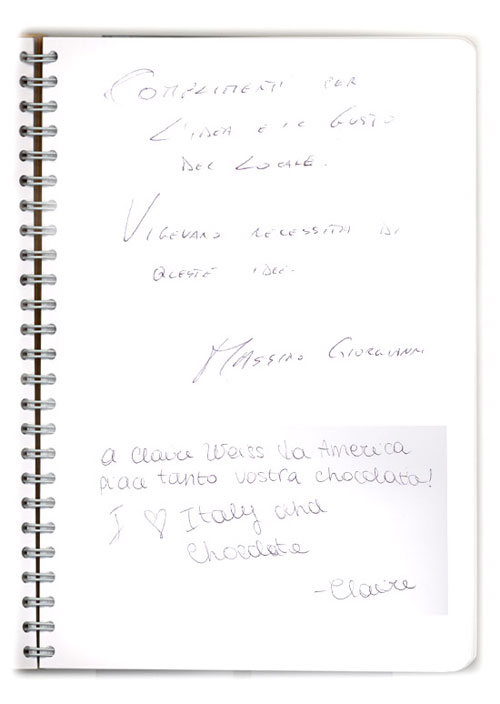 COMPLIMENTI PER
L'IDEA E IL GUSTO
DEL LOCALE.
VIGEVANO NECESSITA DI
QUESTE IDEE.
MASSIMO GIORGIANNI
a Claire Weiss da America
piace tanto vostra chocolata!
I ♡ Italy and
Chocolate
-Claire